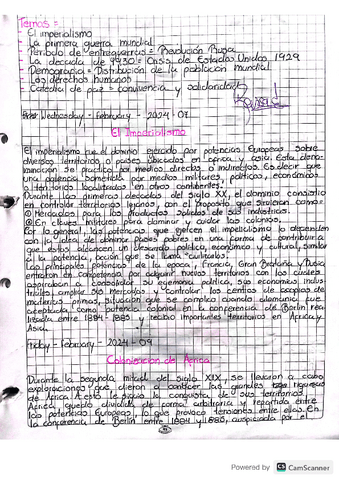 Temas =
- El imperialismo
- La primera guerra mundial
- Periodo de entreguerras = Revolución Rusa
- La decada de 1930 = Crisis de Estados Unidos 1929
- Demografia = Distribución de la población mundial
- Los derechos humanos
- Catedra de paz = convivencia y solidaridad
Wednesday - February - 2024 - 07
El Imperialismo
El imperialismo fue el dominio ejercido por potencias Europeas sobre
diversos territorios o países ubicados en africa y asia. Esta
se practico por medios directos o indirectos. Es decir que
una potencia sometia por medios militares, politicos, economicos
a territorios localizados en otros continentes.
Durante las primeras decadas del siglo XX, el dominio consistio
en controlar territorios lejanos, con el proposito que sirvieran como =
① Mercados para los productos salidos de sus industrias.
② En claves militares para dominar y cuidar las colonias.
Por lo general, las potencias que ejercen el imperialismo lo defienden
con la idea de dominar paises pobres en una forma de contribuir a
que estos alcancen un desarrollo politico, económico y cultural, similar
a la potencia, accion que se llama "civilizarlos".
Las principales potencias de la epoca, Francia, Gran Bretaña y Rusia
entraron en competencia por adquirir nuevos territorios con los cuales
aspiraban a consolidar su hegemonia politica, sus economias indus-
triales, ampliar sus mercados y controlar los centros de acopio de
materias primas, situación que se complico cuando alemania fue
aceptada como potencia colonial en la conferencia de Berlin rea-
lizada entre 1884 - 1885 y recibio importantes territorios en Africa y
Asia.
Friday - February - 2024 - 09
Colonización de Africa
Durante la segunda mitad del siglo XIX, se llevaron a cabo
exploraciones que dieron a conocer las grandes riquezas de
Africa. A esto le siguio la conquista de sus territorios.
Africa quedo dividida de forma arbitraria y repartida entre
las potencias Europeas, lo que provoco tensiones entre ellas. En
la conferencia de Berlin entre 1884 y 1885, auspiciada por el
Powered by CS CamScanner